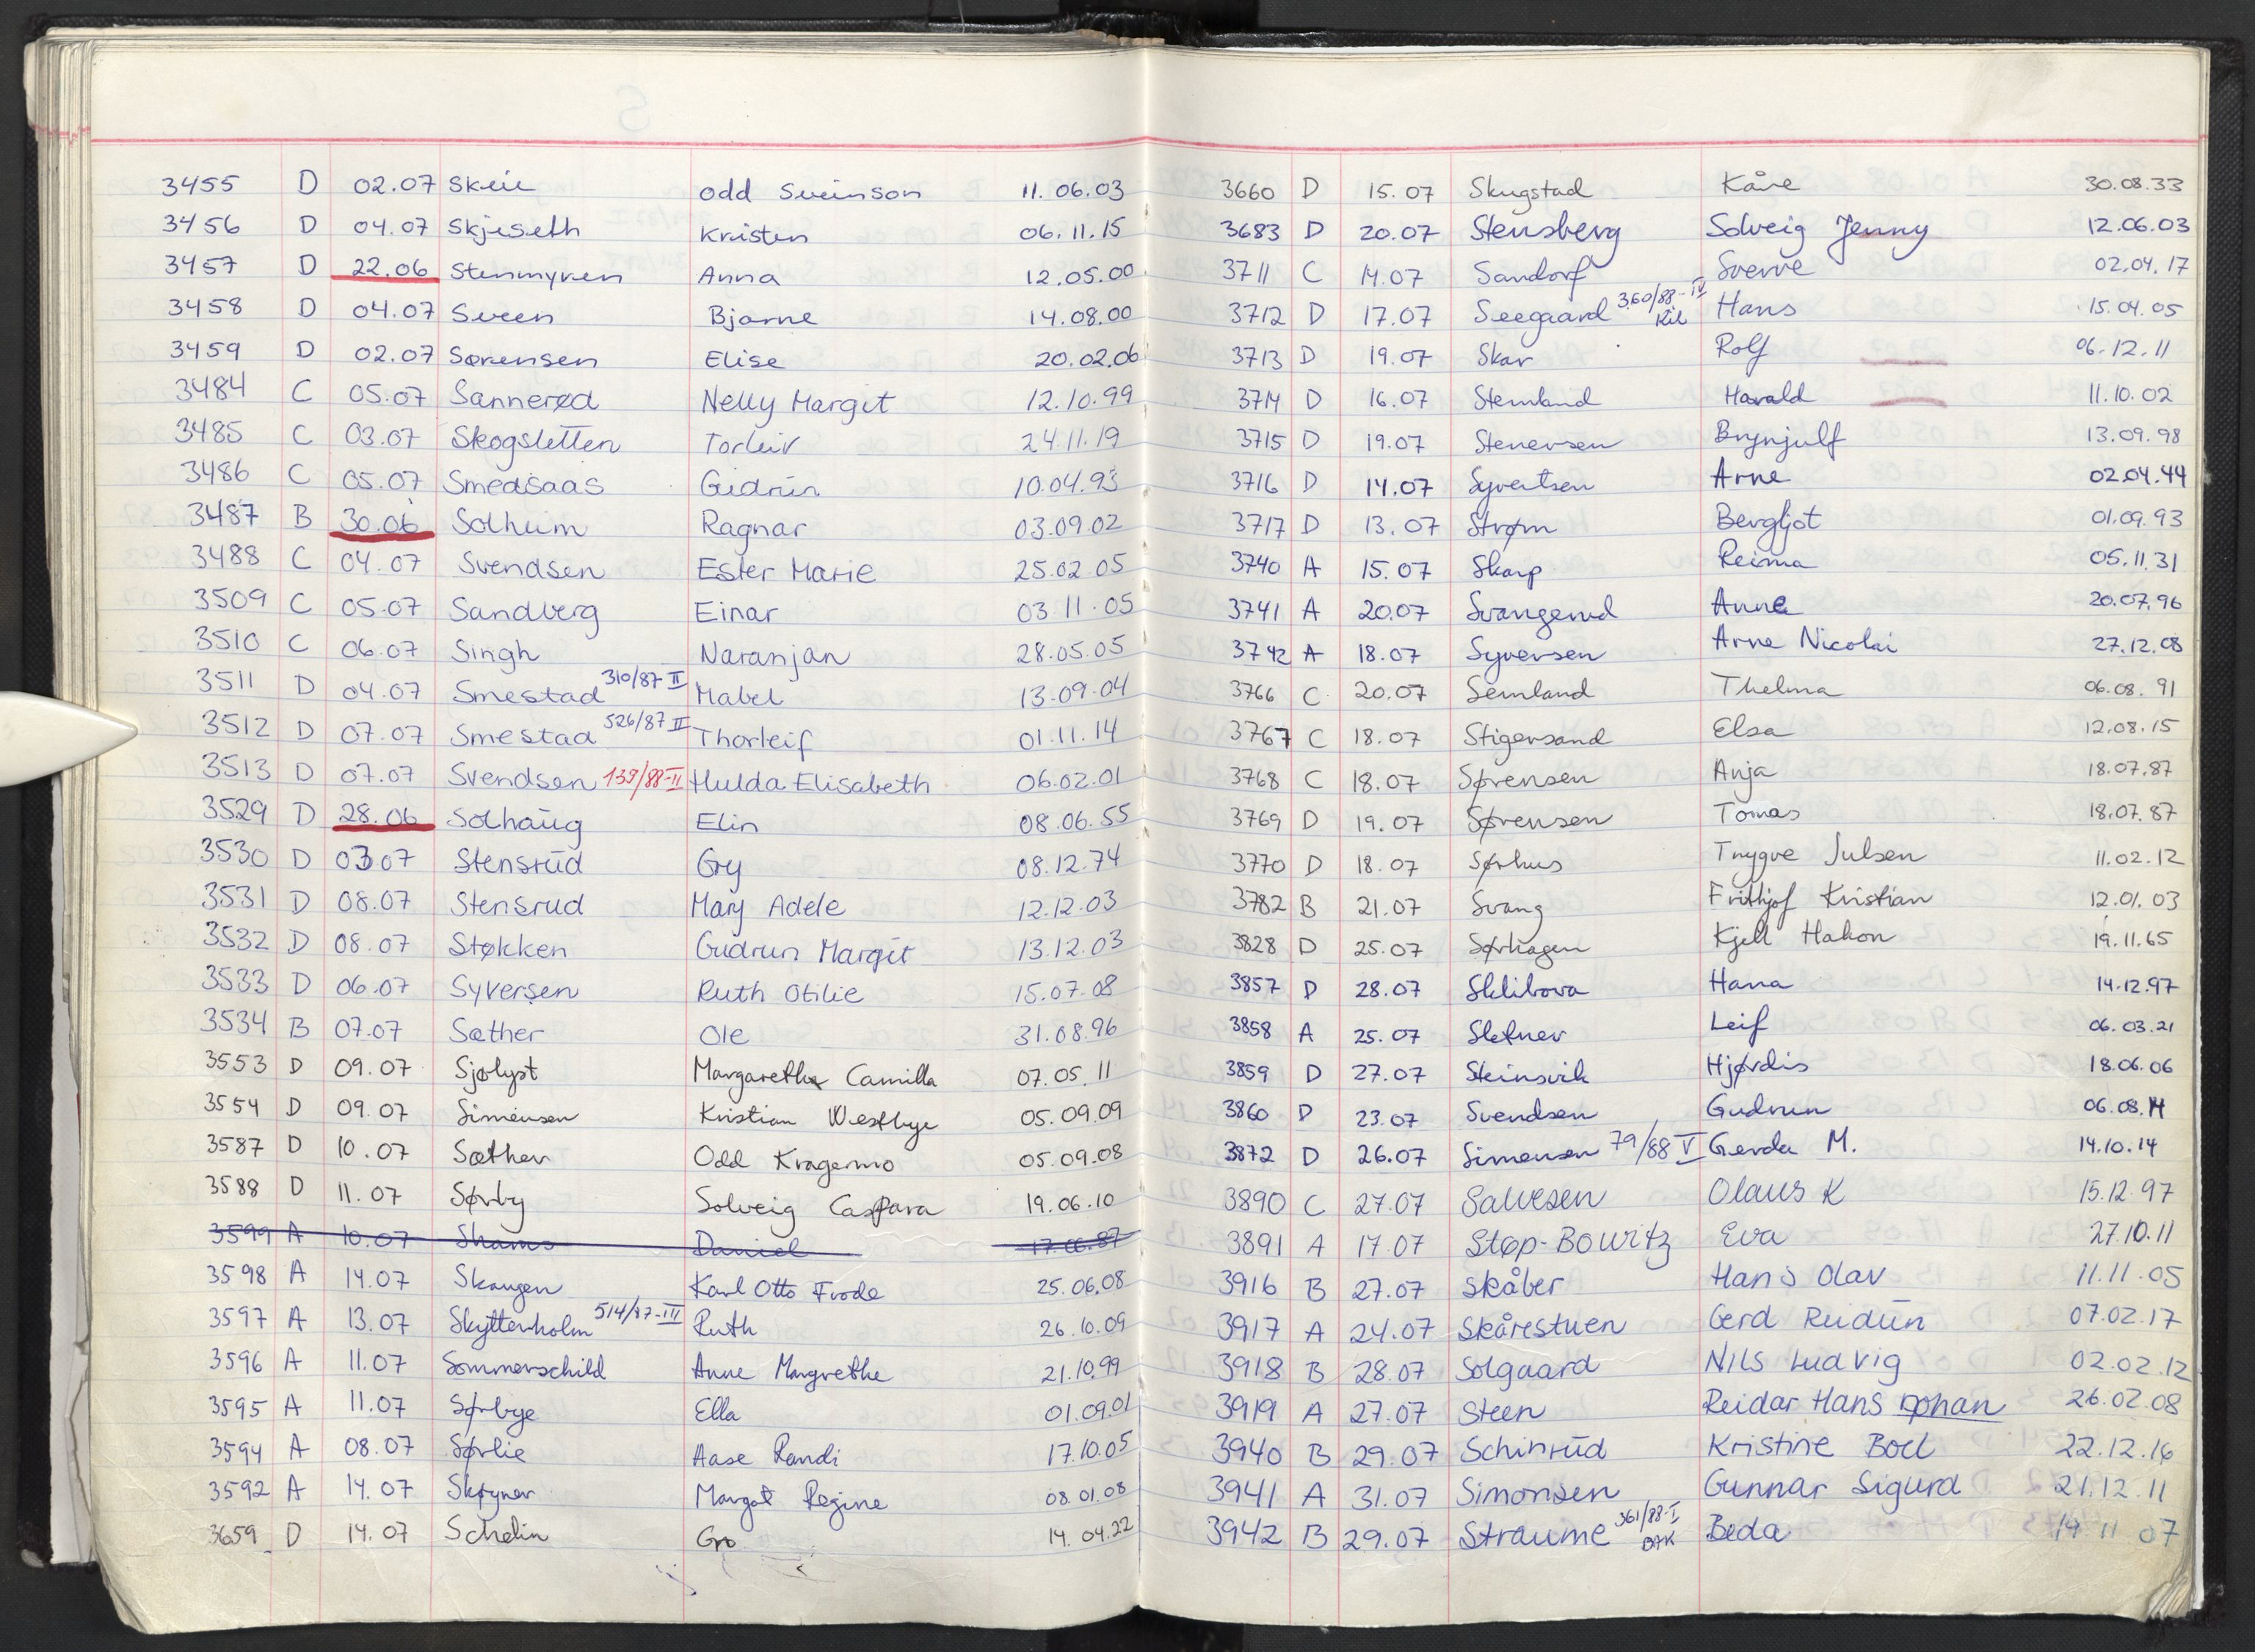 3455 D 02.07 Skeie Odd Sveinson 11.06.03
3456 D 04.07 Skjeseth Kristen 06.11.15
3457 D 22.06 Stenmyren Anna 12.05.00
3458 D 04.07 Sveen Bjarne 14.08.00
3459 D 02.07 Sørensen Elise 20.02.06
3484 C 05.07 Sannerød Nelly Margit 12.10.99
3485 C 03.07 Skogsletten Torleiv 24.11.19
3486 C 05.07 Smedsaas Gudrun 10.04.93
3487 B 30.06 Solheim Ragnar 03.09.02
3488 C 04.07 Svendsen Ester Marie 25.02.05
3509 C 05.07 Sandberg Einar 03.11.05
3510 C 06.07 Singh Naranjan 28.05.05
3511 D 04.07 Smestad 310/87 II Mabel 13.09.04
3512 D 07.07 Smestad 526/87 II Thorleif 01.11.14
3513 D 07.07 Svendsen 139/88-II Hulda Elisabeth 06.02.01
3529 D 28.06 Solhaug Elin 08.06.55
3530 D 03.07 Stensrud Gry 08.12.74
3531 D 08.07 Stensrud Mary Adele 12.12.03
3532 D 08.07 Støkken Gudrun Margit 13.12.03
3533 D 06.07 Syversen Ruth Otilie 15.07.08
3534 B 07.07 Sæther Ole 31.08.96
3553 D 09.07 Sjølyst Margarethe Camilla 07.05.11
3554 D 09.07 Simensen Kristian Westbye 05.09.09
3587 D 10.07 Sæther Odd Kragermo 05.09.08
3588 D 11.07 Sørby Solveig Caspara 19.06.10
3599 A 10.07 Shams Daniel 17.06.87
3598 A 14.07 Skaugen Karl Otto Frode 25.06.08
3597 A 13.07 Skytterholm 514/87-III Ruth 26.10.09
3596 A 11.07 Sommerschild Anne Margrethe 21.10.99
3595 A 11.07 Sørbye Ella 01.09.01
3594 A 08.07 Sørlie Aase Randi 17.10.05
3592 A 14.07 Skøyner Margot Regine 08.01.08
3659 D 14.07 Schelin Gro 14.04.22
3660 D 15.07 Skugstad Kåre 30.08.33
3683 D 20.07 Stensberg Solveig Jenny 12.06.03
3711 C 14.07 Sandorf Sverre 02.04.17
3712 D 17.07 Seegaard 360/88-IV Kil Hans 15.04.05
3713 D 19.07 Skar Rolf 06.12.11
3714 D 16.07 Stemland Harald 11.10.02
3715 D 19.07 Stenersen Brynjulf 13.09.98
3716 D 14.07 Syvertsen Arne 02.04.44
3717 D 13.07 Strøm Bergljot 01.09.93
3740 A 15.07 Skarp Reima 05.11.31
3741 A 20.07 Svangerud Anna 20.07.96
3742 A 18.07 Syversen Arne Nicolai 27.12.08
3766 C 20.07 Semland Thelma 06.08.91
3767 C 18.07 Stigersand Elsa 12.08.15
3768 C 18.07 Sørensen Anja 18.07.87
3769 D 19.07 Sørensen Tomas 18.07.87
3770 D 18.07 Sørhus Trygve Julsen 11.02.12
3782 B 21.07 Svang Frithjof Kristian 12.01.03
3828 D 25.07 Sørhagen Kjell Hakon 19.11.65
3857 D 28.07 Sklibova Hana 14.12.97
3858 A 25.07 Sletner Leif 06.03.21
3859 D 27.07 Steinsvik Hjørdis 18.06.06
3860 D 23.07 Svendsen Gudrun 06.08.14
3872 D 26.07 Simensen 79/88 V Gerda M. 14.10.14
3890 C 27.07 Salvesen Olaus K 15.12.97
3891 A 17.07 Støp-Bowitz Eva 27.10.11
3916 B 27.07 Skåber Hans Olav 11.11.05
3917 A 24.07 Skårestuen Gerd Reidun 07.02.17
3918 B 28.07 Solgaard Nils Ludvig 02.02.12
3919 A 27.07 Steen Reidar Hans Johan 26.02.08
3940 B 29.07 Schinrud Kristine Boel 22.12.16
3941 A 31.07 Simonsen Gunnar Sigurd 21.12.11
3942 B 29.07 Straume 361/88-I BAK Beda 19.11.07